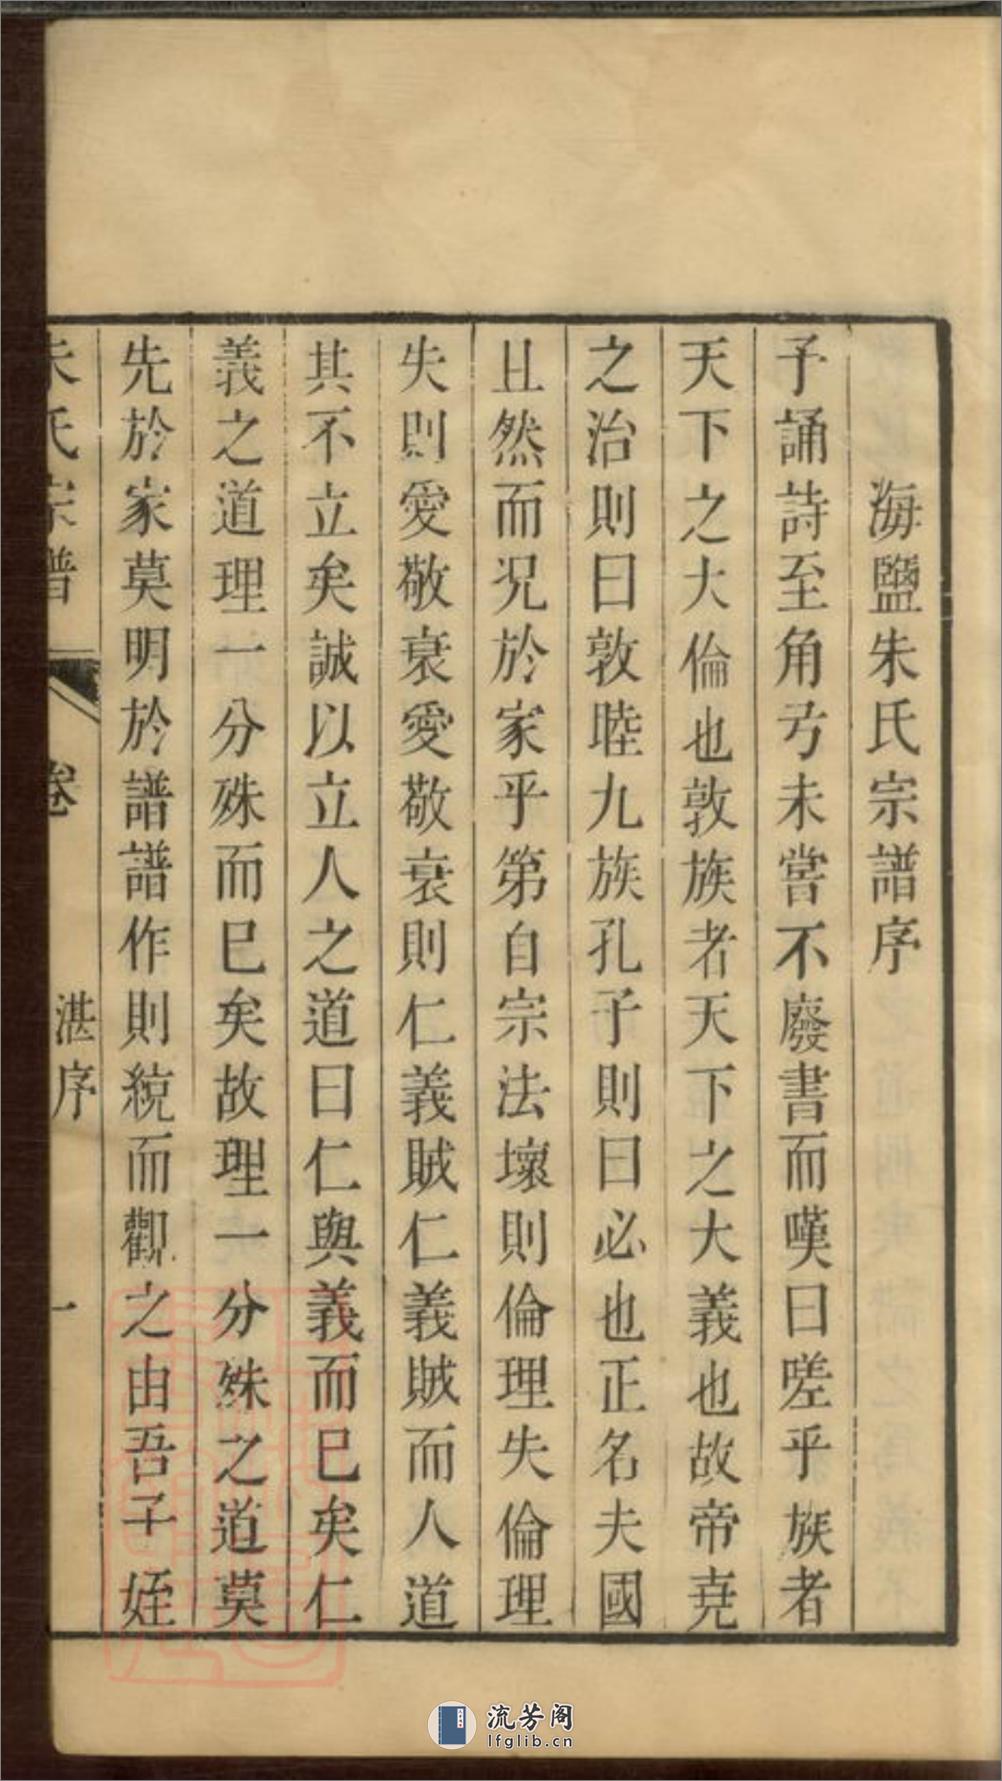 海鹽朱氏宗譜序
予誦詩至角弓未嘗不廢書而嘆曰嗟乎族者
天下之大倫也敦族者天下之大義也故帝堯
之治則曰敦睦九族孔子則曰必也正名夫國
且然而况於家乎第自宗法壞則倫理失倫理
失則愛敬衰愛敬衰則仁義賊仁義賊而人道
其不立矣誠以立人之道曰仁與義而已矣仁
義之道理一分殊而已矣故理一分殊之道莫
先於家莫明於譜譜作則統而觀之由吾子姪
朱氏宗譜 卷 湛序 一
流芳阁
lfglib.cn